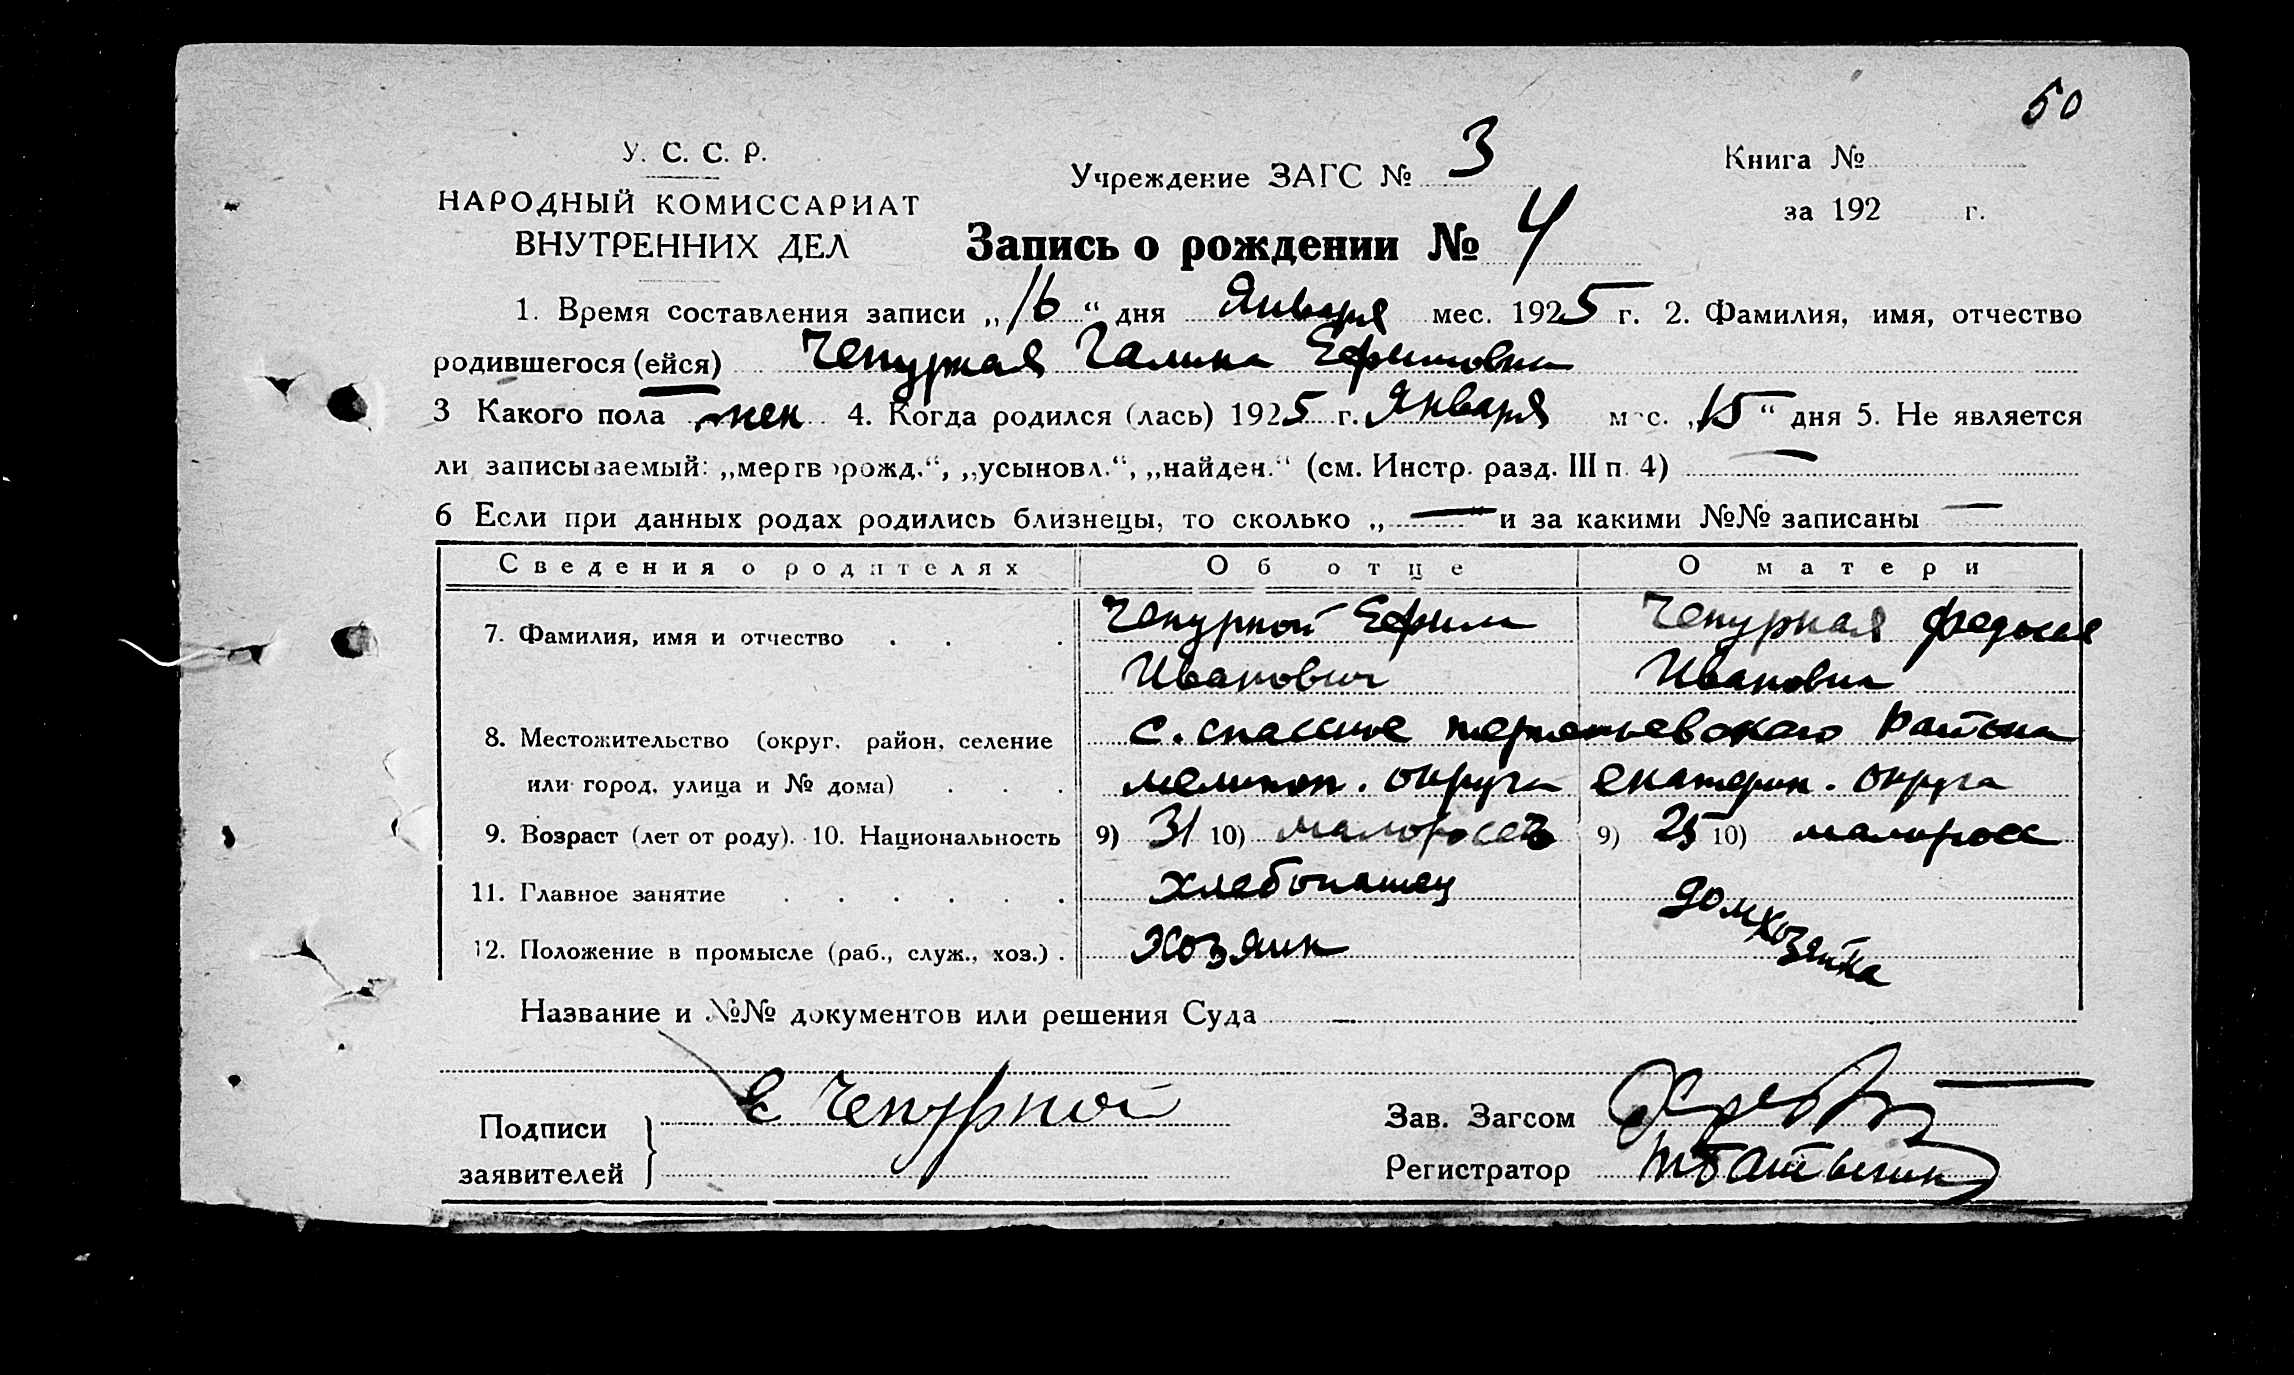 50
У. С. С. Р.
Учреждение ЗАГС № 3
Книга №
НАРОДНЫЙ КОМИССАРИАТ
за 192 г.
ВНУТРЕННИХ ДЕЛ
Запись о рождении № 4
1. Время составления записи „16“ дня Января мес. 1925 г. 2. Фамилия, имя, отчество
родившегося (ейся) Чепурная Галина Ефимовна
3 Какого пола жен 4. Когда родился (лась) 1925 г. Января мес. „15“ дня 5. Не является
ли записываемый: „мертворожд.“, „усыновл.“, „найден.“ (см. Инстр. разд. III п. 4) —
6 Если при данных родах родились близнецы, то сколько „—“ и за какими №№ записаны —
Сведения о родителях Об отце О матери
7. Фамилия, имя и отчество . . . Чепурной Ефим Чепурная
Иванович Ивановна
8. Местожительство (округ, район, селение с. района
или город, улица и № дома) . . . мелитоп. округа екатерин. округа
9. Возраст (лет от роду). 10. Национальность 9) 31 10) малороссъ 9) 25 10) малоросс
11. Главное занятие . . . . . . хлебопашец домхозяйка
12. Положение в промысле (раб., служ., хоз.) . Хозяин
Название и №№ документов или решения Суда —
Подписи заявителей } Е Чепурной
Зав. Загсом
Регистратор